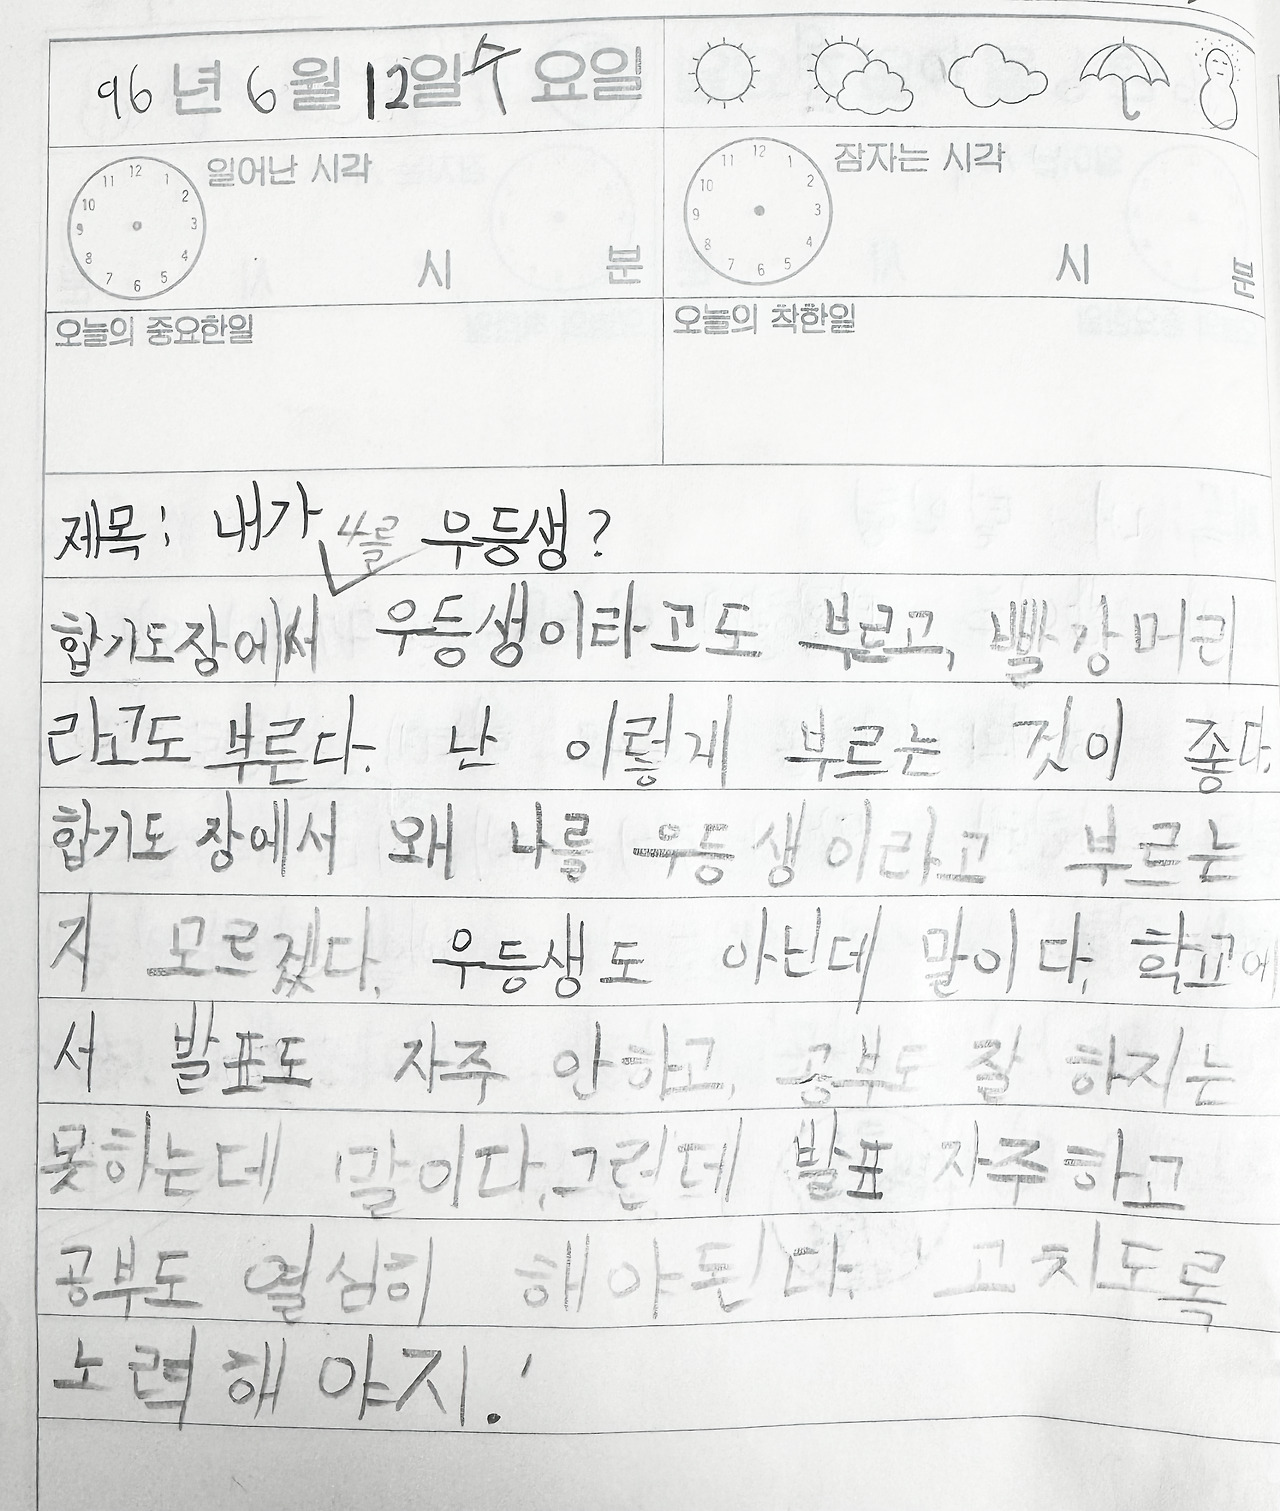 96년 6월 12일 수 요일
12 1 2 3 4 5 6 7 8 9 10 11
일어난 시각
시 분
12 1 2 3 4 5 6 7 8 9 10 11
잠자는 시각
시 분
오늘의 중요한일
오늘의 착한일
제목: 내가 우등생?
합기도장에서 우등생이라고도 부르고, 빨강머리
라고도 부른다. 난 이렇게 부르는 것이 좋다.
합기도 장에서 왜 나를 우등생이라고 부르는
지 모르겠다. 우등생도 아닌데 말이다. 학교에
서 발표도 자주 안하고, 공부도 잘 하지는
못하는데 말이다. 그런데 발표 자주하고
공부도 열심히 해야된다. 고치도록
노력해야지.